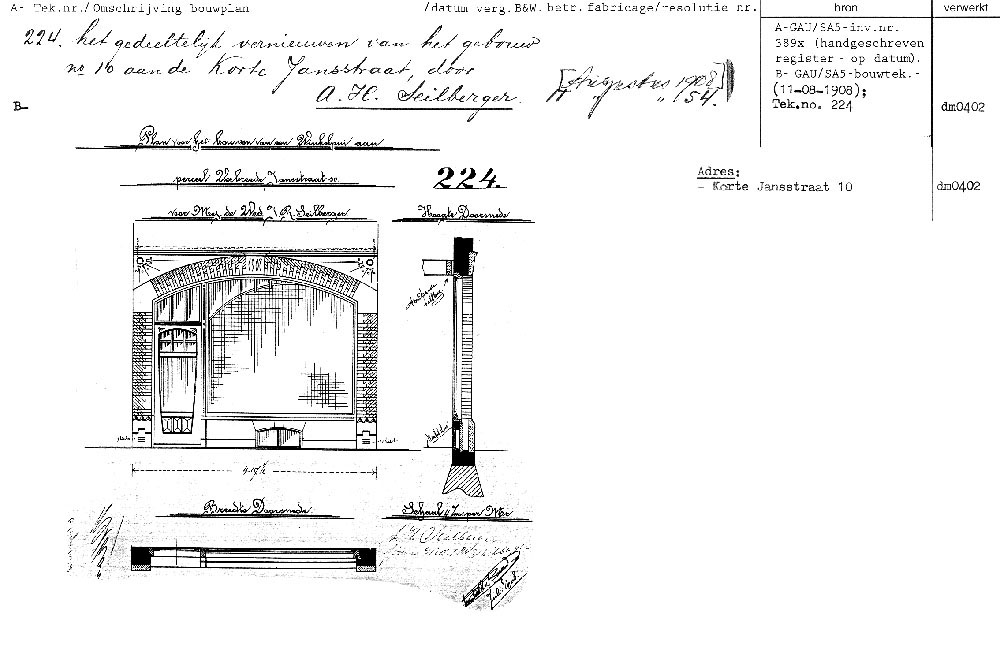 A- Tek.nr./Omschrijving bouwplan /datum verg.B&W.betr.fabricage/resolutie nr. bron verwerkt
224. het gedeeltelijk vernieuwen van het gebouw
no 10 aan de Korte Jansstraat, door
A. H. Seilberger.
[Augustus 1908]
" " 154.
A-GAU/SA5-inv.nr.
389x (handgeschreven
register - op datum).
B- GAU/SA5-bouwtek.-
(11-08-1908);
Tek.no. 224
dm0402
B-
Plan voor het bouwen van een Winkelpui aan
perceel Jansstraat
voor Mej. de Wed R. Seilberger
224.
Hoogte Doorsnede
Adres:
- Korte Jansstraat 10
dm0402
Breedte Doorsnede
Schaal